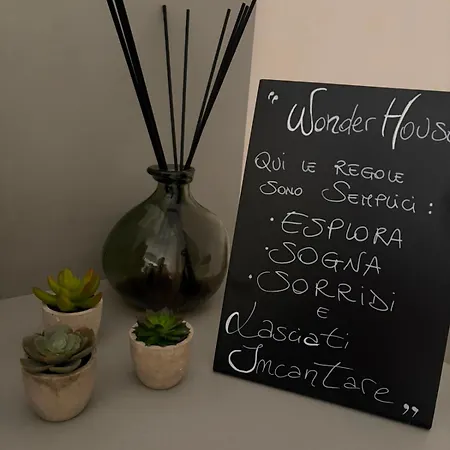 “Wonder House
Qui le regole
sono semplici:
· ESPLORA
· SOGNA
· SORRIDI
e
Lasciati
Incantare”